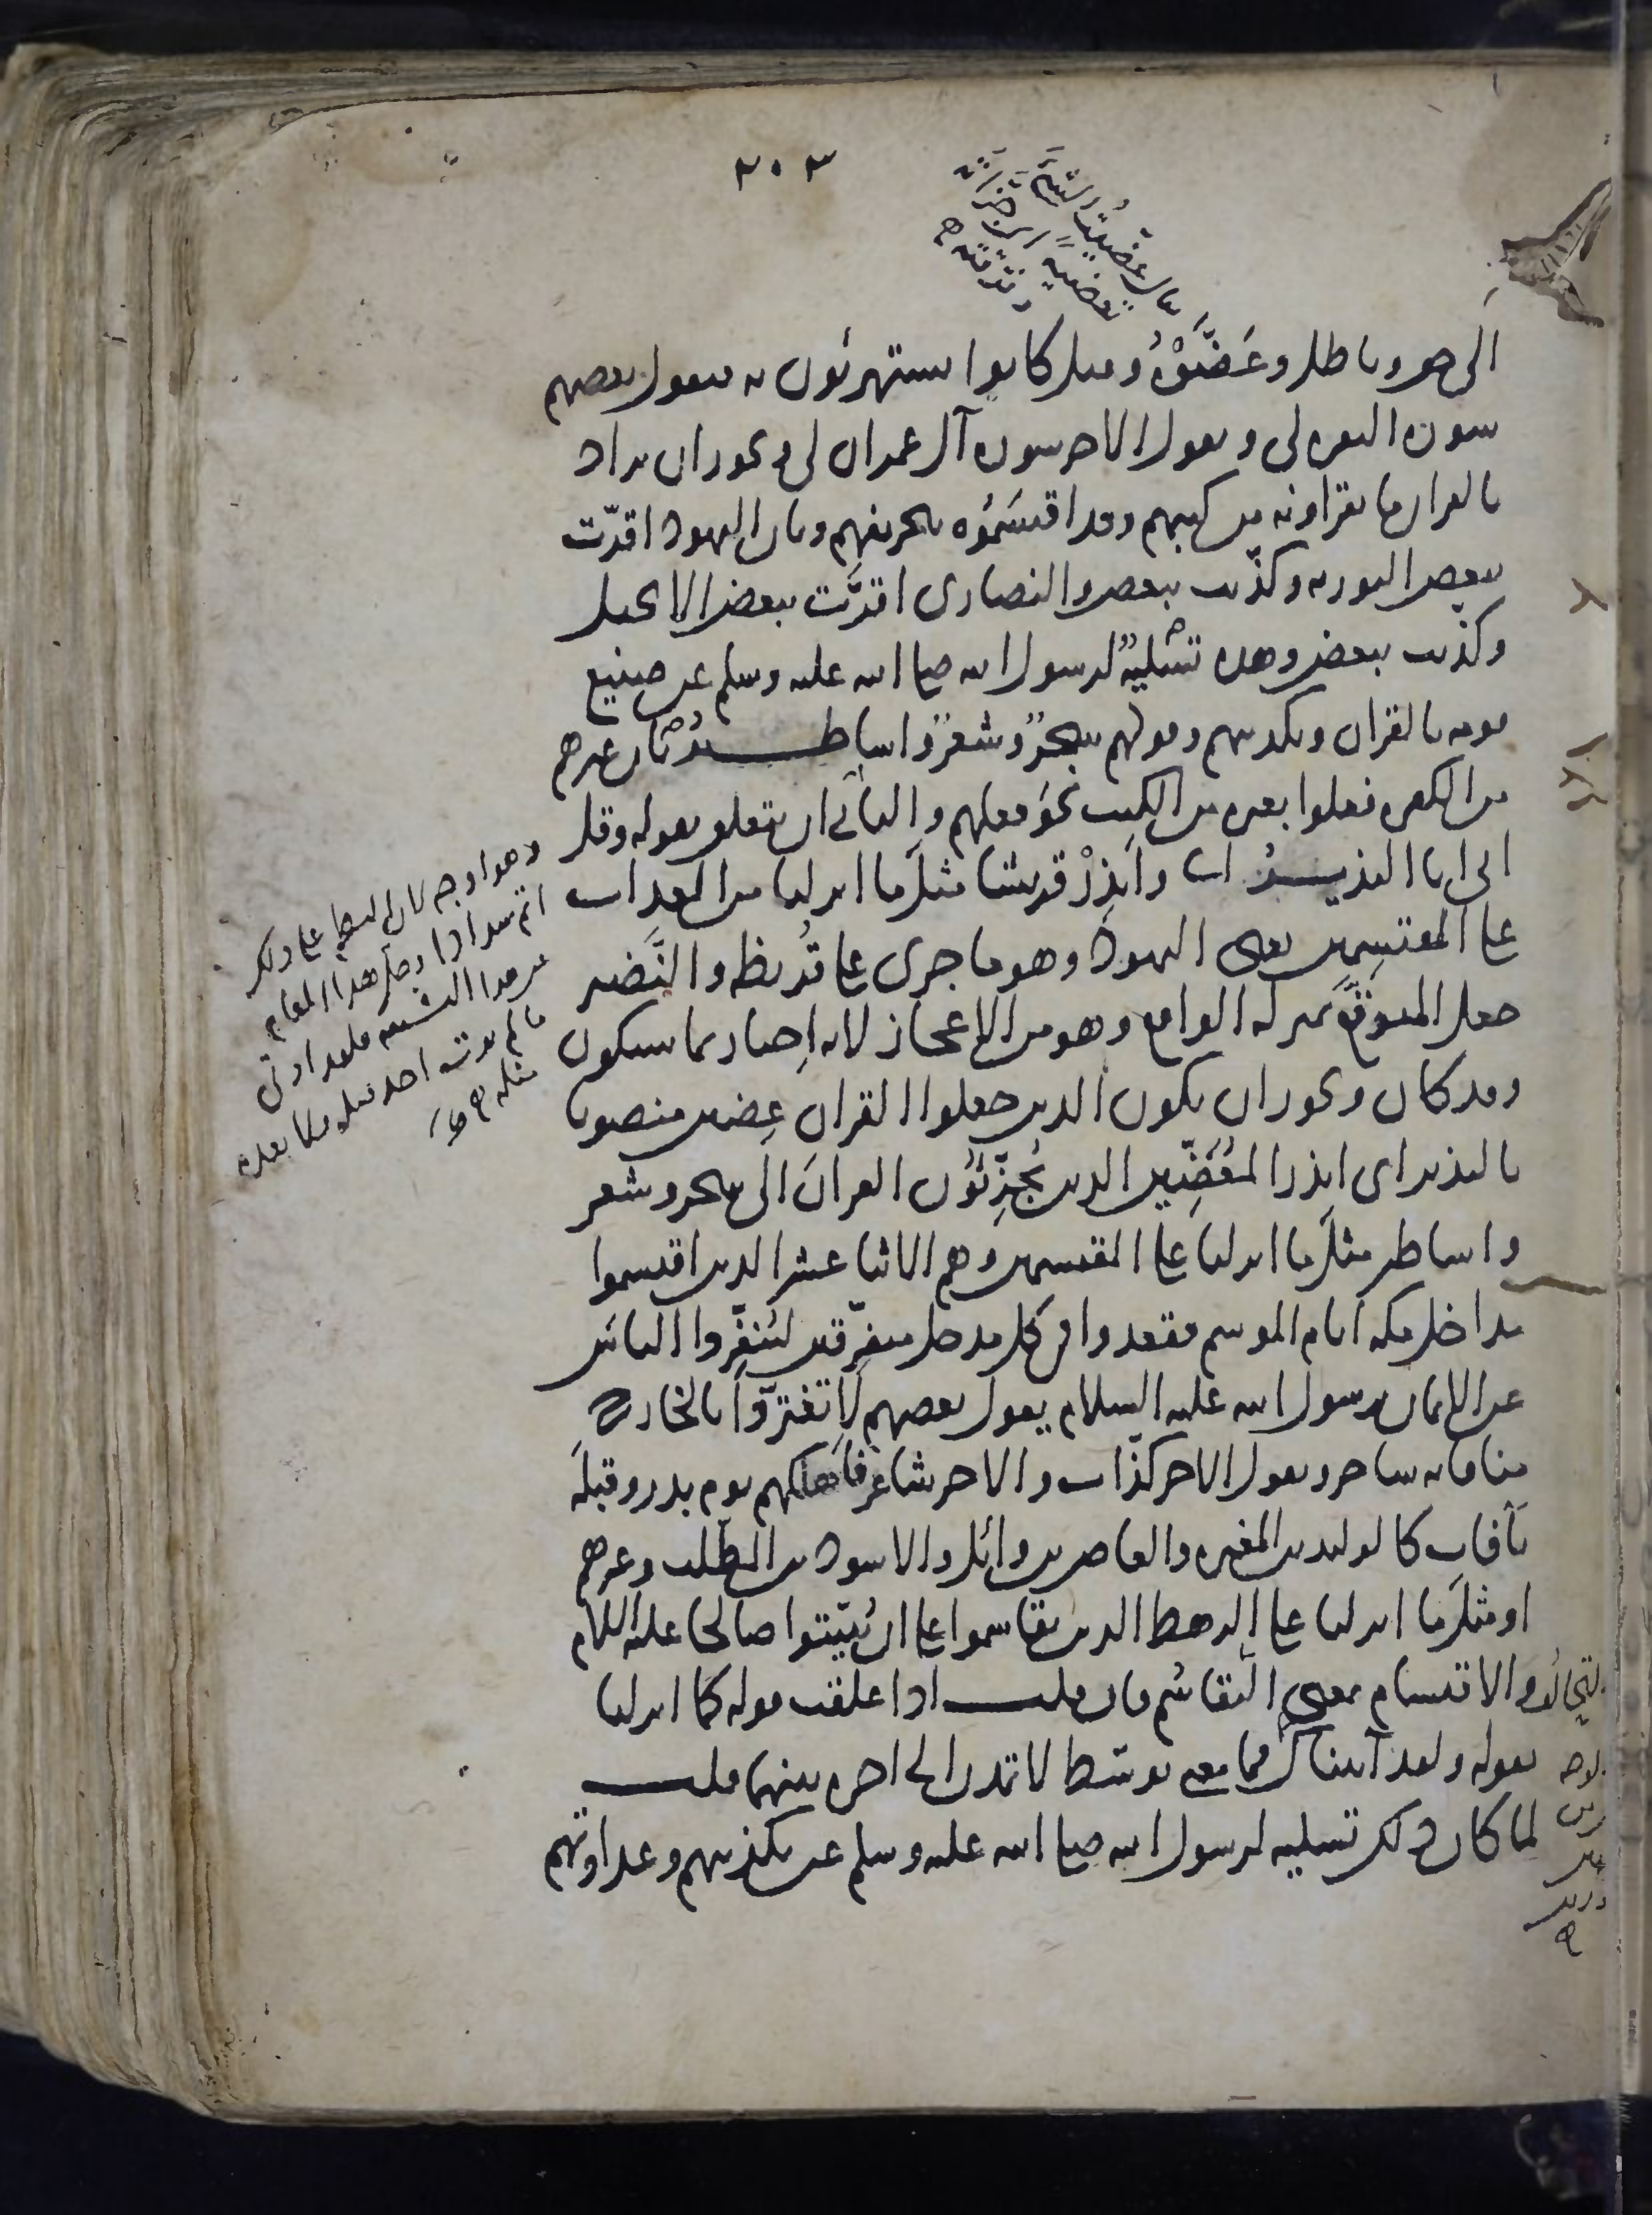 ٣٠٣
يقال عضيت الشئ
تعضية اى جزأته
وفرقته
الى حق وباطل وعَضَّوْهُ وقيل كانوا يستهزئون به فيقول بعضهم
سورة البقرة لى ويقول الاخر سورة آل عمران لى ويجوز ان يراد
بالقران ما يقرأونه من كتبهم وقد اقتسَمُوْه بتحريفهم وبان اليهود اقرّت
ببعض التورية وكذّبت ببعض والنصارى اقرَّت ببعض الانجيل
وكذبت ببعض وهذه تَسْلِيَةٌ لرسول الله صلى الله عليه وسلم عن صنيع
قومه بالقران وتكذيبهم وقولهم سِحرٌ وشعرٌ واساطيرُ بأن غيرهم
من الكفرة فعلوا بغيره من الكتب نحوَ فعلهم والثانى ان يتعلق بقوله وقل
انى انا النذيـــرُ اى وانذِرْ قريشا مثلَ ما انزلنا من العذاب
على المقتسِمين يعنى اليهودَ وهو ما جرى على قُريظة والنَّضير
جعل المتوقَّعَ بمنزلة الواقع وهو من الاعجاز لانه اِخبار بما سيكون
وقد كان ويجوز ان يكون الذين جعلوا القرانَ عِضين منصوبا
بالنذير اى انذر المُعَضِّين الذين يُجَزِّئُون القرانَ الى سحر وشعر
واساطير مثلَ ما انزلنا على المقتسمين وهم الاثنا عشر الذين اقتسموا
مداخل مكه ايام الموسم فقعدوا فى كل مدخل متفرّقين ليُنفِّروا الناسَ
عن الايمان برسول الله عليه السلام يقول بعضهم لا تغترّوا بالخارج
منا فانه ساحر ويقول الاخر كذّاب والاخر شاعر فاهلكهم يوم بدر وقبلَه
بآفاتٍ كالوليد بن المغيره والعاص بن وائل والاسود بن المطّلب وغيرهم
او مثلَ ما انزلنا على الرهط الذين تقاسموا على ان يُبَيِّتوا صالحا عليه السلام
والاقتسام بمعنى التقاسُم فان قلت اذا علقت قوله كما انزلنا
بقوله ولقد آتيناك فما معنى توسّط لا تمدن الى اخره بينهما قلت
لما كان ذلك تسلية لرسول الله صلى الله عليه وسلم عن تكذيبهم وعداوتهم
وهو اوجه لان
هذا المقام
ما لم يوت احد قبله ولا بعده
مثله